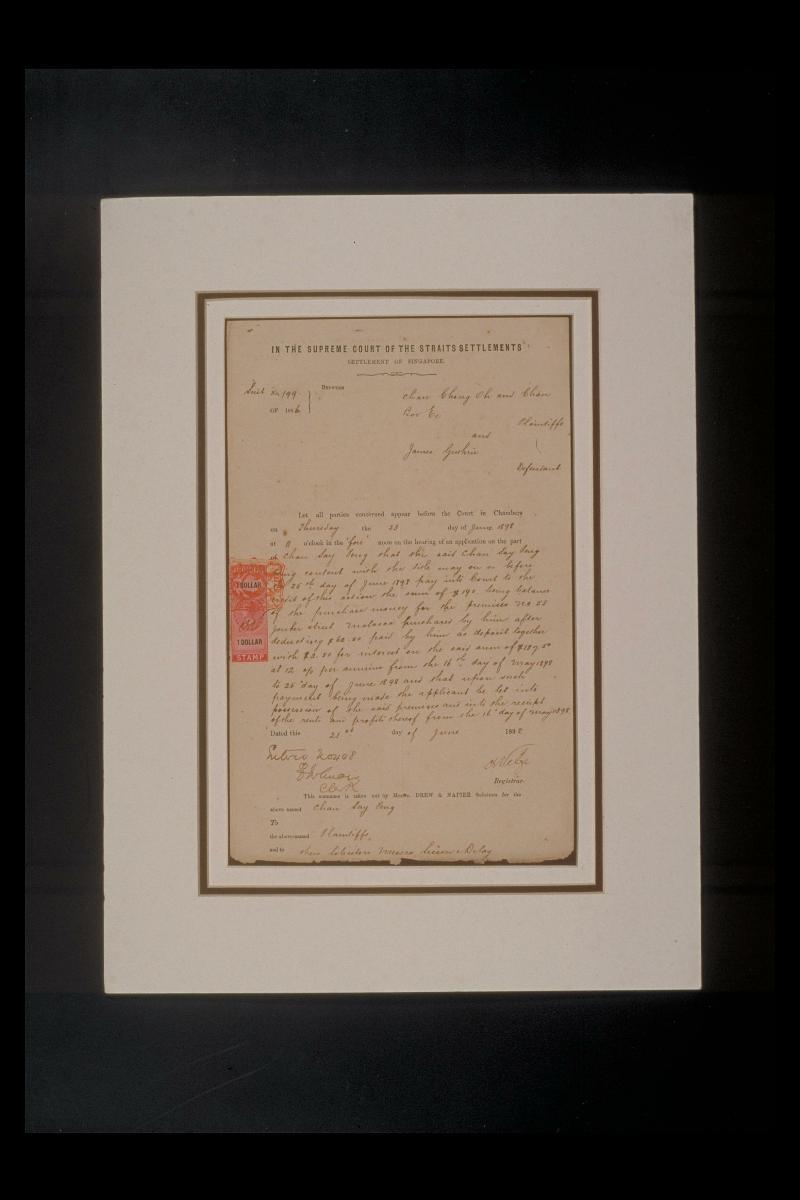 IN THE SUPREME COURT OF THE STRAITS SETTLEMENTS
SETTLEMENT OF SINGAPORE.
Suit No 199 BETWEEN Chan Cheng Oh and Chan
OF 1896 Boo Ee
Plaintiffs
and
James Guthrie
Defendant
Let all parties concerned appear before the Court in Chambers
on Thursday the 23 day of June 1898
at 11 o'clock in the "fore" noon on the hearing of an application on the part
of Chan Say Seng that the said Chan Say Seng
being content with the title may on or before
the 25th day of June 1898 pay into Court to the
credit of this action the sum of $190 being balance
of the purchase money for the premises No 58
Jonker Street Malacca purchased by him after
deducting $62.50 paid by him as deposit together
with $2.50 for interest on the said sum of $187.50
at 12 o/o per annum from the 16th day of May 1898
to 25th day of June 1898 and that upon such
payment being made the applicant be let into
possession of the said premises and into the receipt
of the rents and profits thereof from the 16th day of May 1898
Dated this 21st day of June 1898
Registrar.
Clerk
This summons is taken out by Messrs. DREW & NAPIER Solicitors for the
above named Chan Say Seng
To
the above-named Plaintiffs,
and to their Solicitors Messrs
1 DOLLAR
1 DOLLAR
STAMP